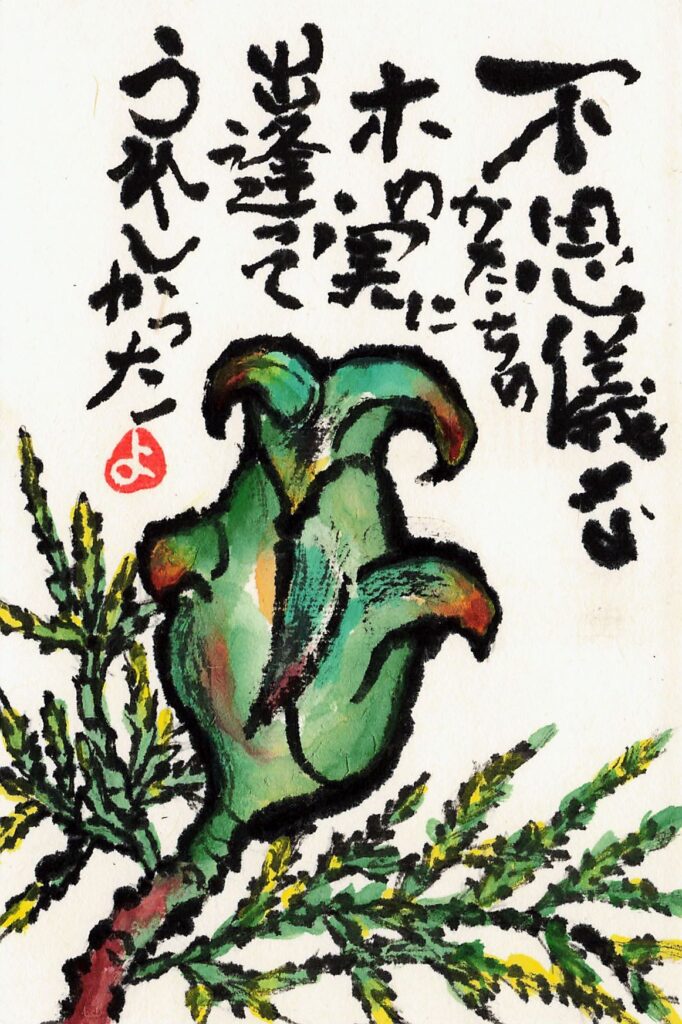 不思儀な
かたちの
木の実に
出逢って
うれしかった
よ